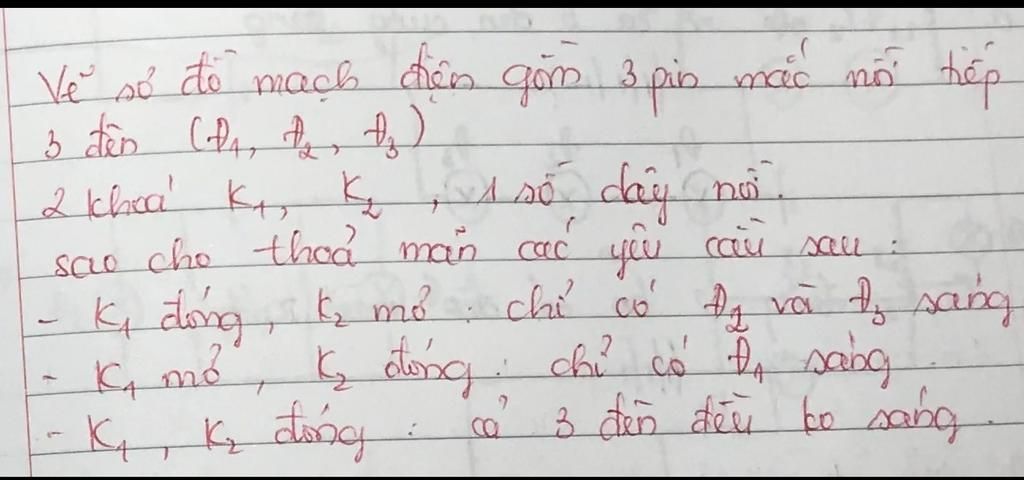 Vẽ sơ đồ mạch điện gồm 3 pin mắc nối tiếp
3 đèn (Đ1, Đ2, Đ3)
2 khoá K1, K2, 1 số dây nối.
sao cho thoả mãn các yêu cầu sau:
- K1 đóng, K2 mở: chỉ có Đ2 và Đ3 sáng
- K1 mở, K2 đóng: chỉ có Đ1 sáng.
- K1, K2 đóng: cả 3 đèn đều ko sáng.